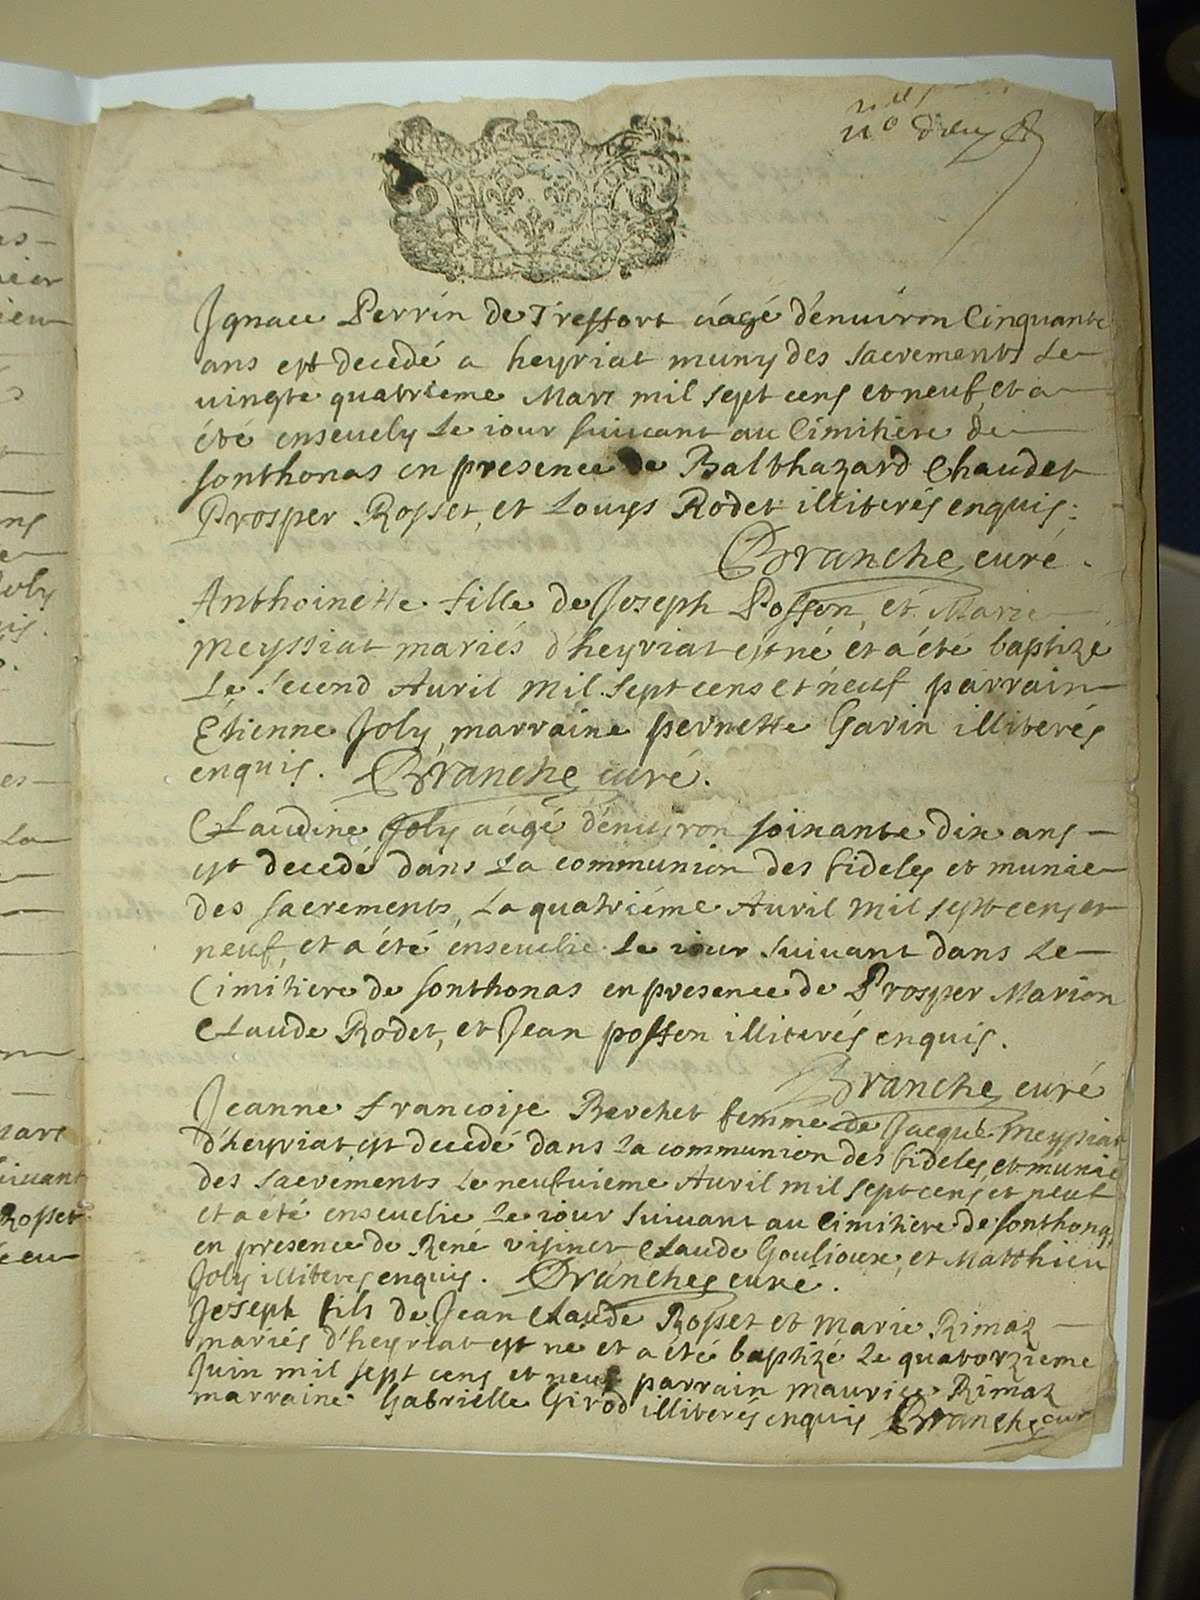 Ignace Perrin de Treffort aagé d'enuiron Cinquante
ans est decedé a heyriat muny des sacrements Le
uingte quatrieme Mars mil sept cens et neuf, et a
été enseuely Le iour suiuant au Cimitière de
sonthonas en presence de Balthazard Chaudet
Prosper Rosset, et Louys Rodet illiterés enquis.
Branche curé.
Anthoinette fille de Joseph Posson, et Marie
Meyssiat mariés d'heyriat est né et a été baptizé
Le second Auril mil sept cens et neuf parrain
Étienne Joly, marraine pernette Gavin illiterés
enquis. Branche curé.
Claudine Joly aagé d'enuiron soixante dix ans
est decedé dans La communion des fideles et munie
des sacrements, La quatriéme Auril mil sept cens et
neuf, et a été enseuelie Le iour suiuant dans Le
Cimitiere de sonthonas en presence de Prosper Marion
Claude Rodet, et Jean posson illiterés enquis.
Branche curé
Jeanne francoise Berchet femme de Jacque Meyssiat
d'heyriat est decedé dans La communion des fideles, et munie
des sacrements Le neufuieme Auril mil sept cens et neuf
et a été enseuelie Le iour suiuant au Cimitiere de sonthonas
en presence de René Claude Goulioux, et Matthieu
Joly illiteres enquis. Branche curé.
Joseph fils de Jean Claude Rosset et Marie Rimaz
mariés d'heyriat est né et a été baptizé Le quatorzieme
Juin mil sept cens et neuf parrain Maurice Rimaz
marraine Gabrielle Girod illiterés enquis Branche curé